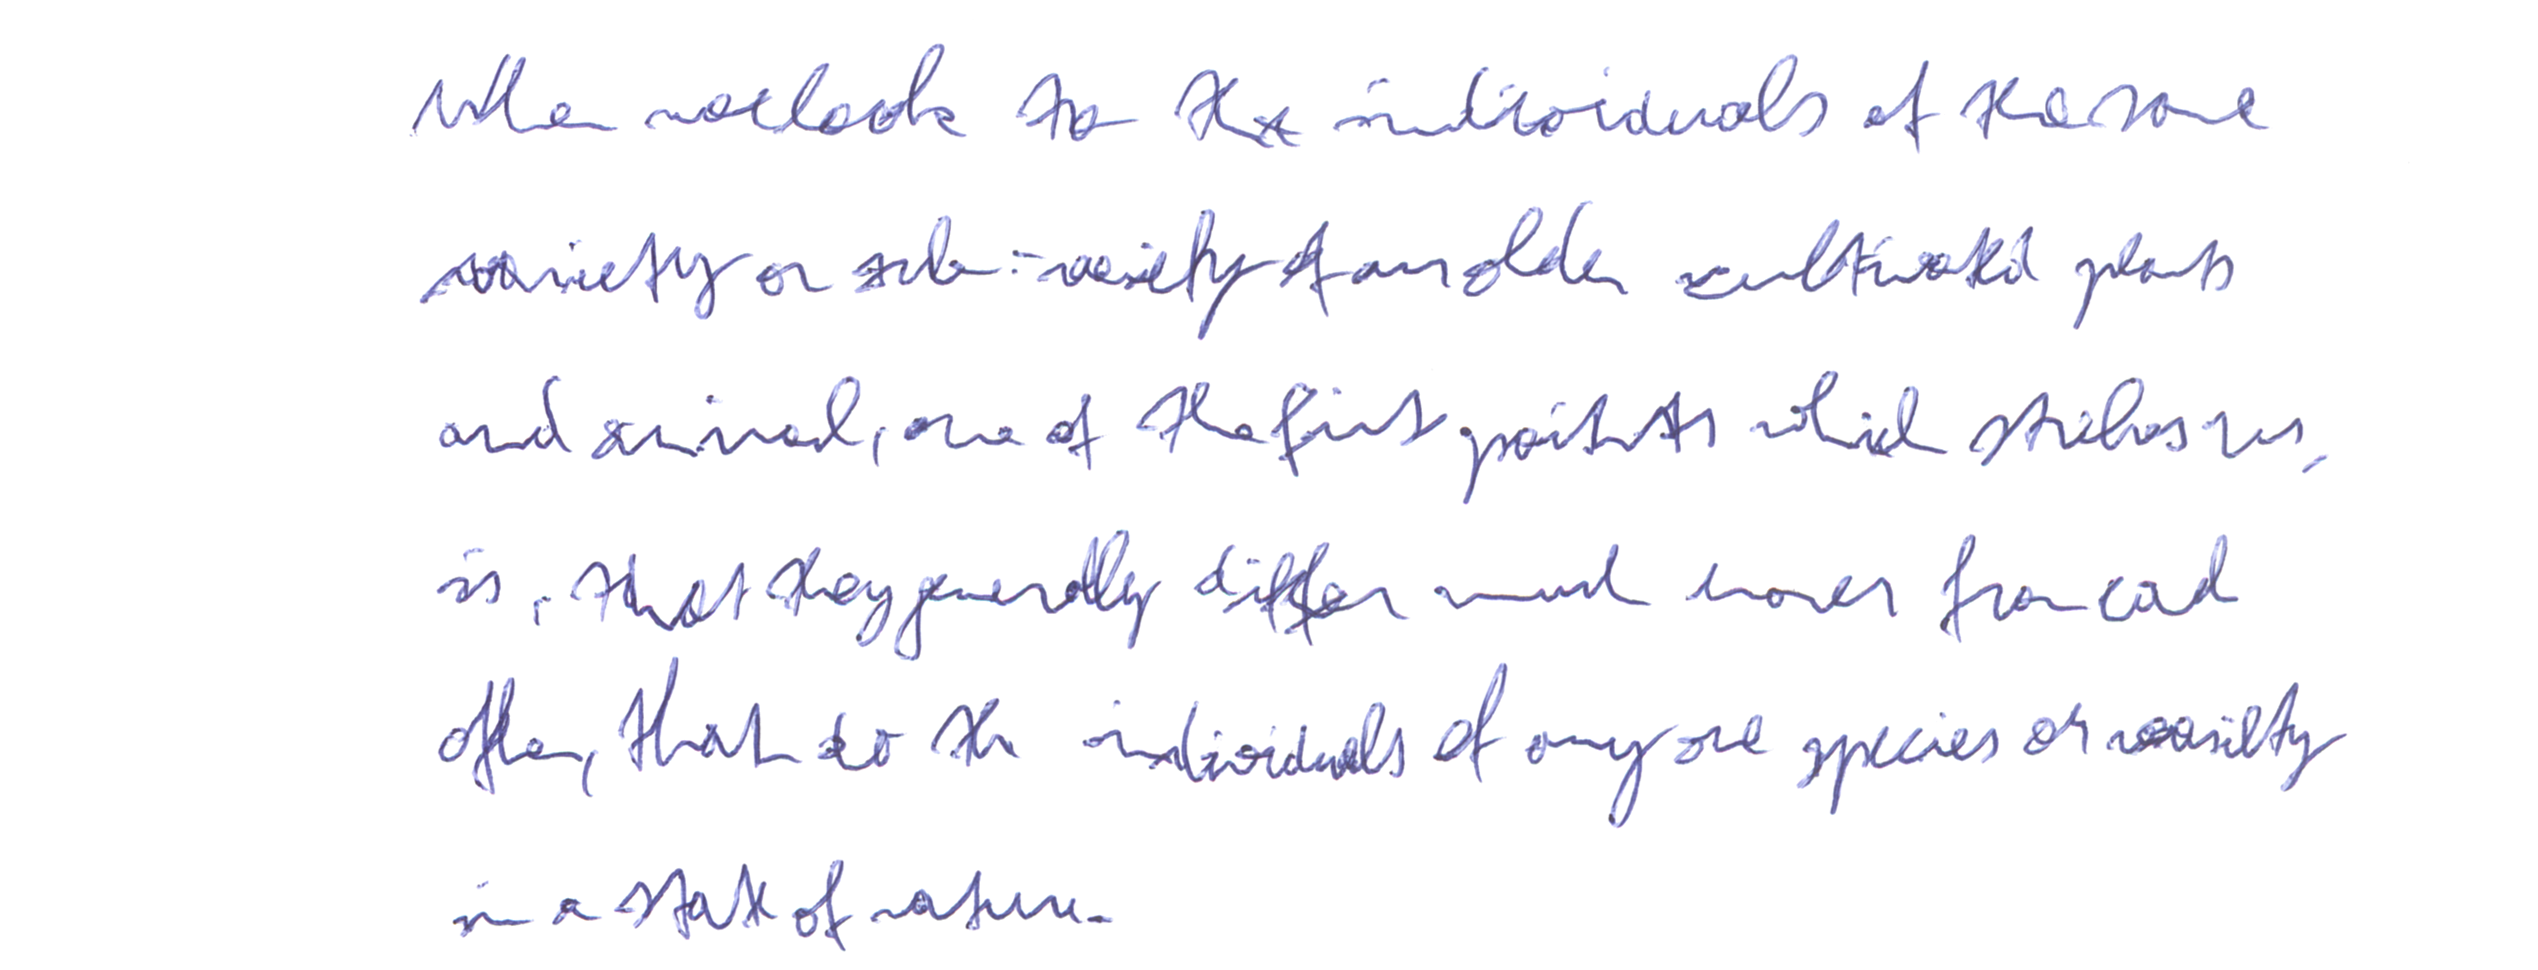 When we look to the individuals of the same
variety or sub-variety of our older cultivated plants
and animal, one of the first points which strikes us,
is, that they generally differ much more from each
other, than do the individuals of any one species or variety
in a state of nature.